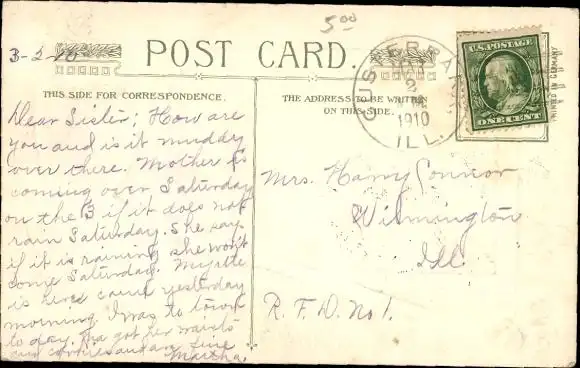 5.00
3-2-10
POST CARD.
U.S. POSTAGE
ONE CENT
PRINTED IN GERMANY
CUSTER PARK
MAR
2
1910
ILL.
THIS SIDE FOR CORRESPONDENCE.
THE ADDRESS TO BE WRITTEN
ON THIS SIDE.
Dear Sister; How are
you and is it muddy
over there. Mother is
coming over Saturday
on the 3 if it does not
rain Saturday. She say
if it is raining she won't
come Saturday. Myrtle
is here came yesterday
morning. I was to town
to day. Ma got her waists
and
fine
Martha.
Mrs. Harry Connor
Wilmington
Ill.
R. F. D. No 1.